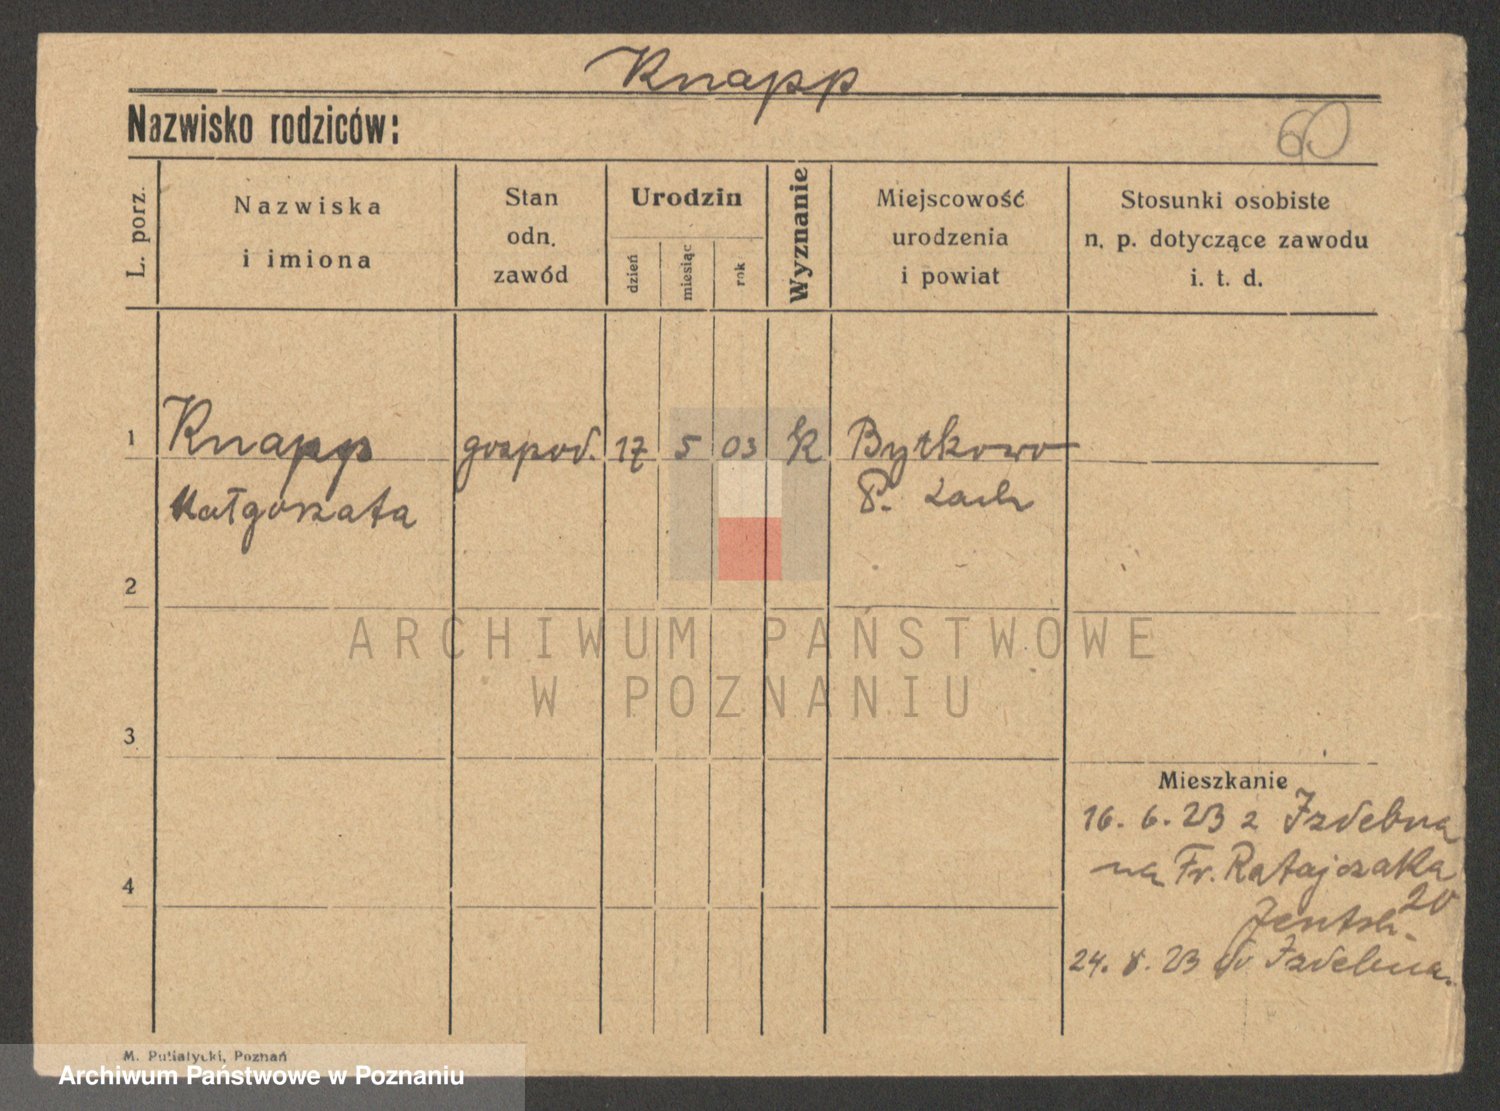 Knapp
Nazwisko rodziców:
60
L. porz.
Nazwiska
i imiona
Stan
odn.
zawód
Urodzin
dzień
miesiąc
rok
Wyznanie
Miejscowość
urodzenia
i powiat
Stosunki osobiste
n. p. dotyczące zawodu
i. t. d.
1
Knapp gospod. 17 5 03 k Bytkowo
Małgorzata P.
2
3
4
Mieszkanie
16. 6. 23 z Izdebna
na Fr. Ratajczaka
20
Jentsch.
24. 8. 23 do Izdebna.
M. Putiatycki, Poznań
ARCHIWUM PAŃSTWOWE
W POZNANIU
Archiwum Państwowe w Poznaniu